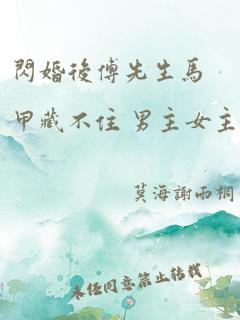 閃婚後傅先生馬
甲藏不住 男主女主
莫海謝雨桐
未經同意禁止轉載